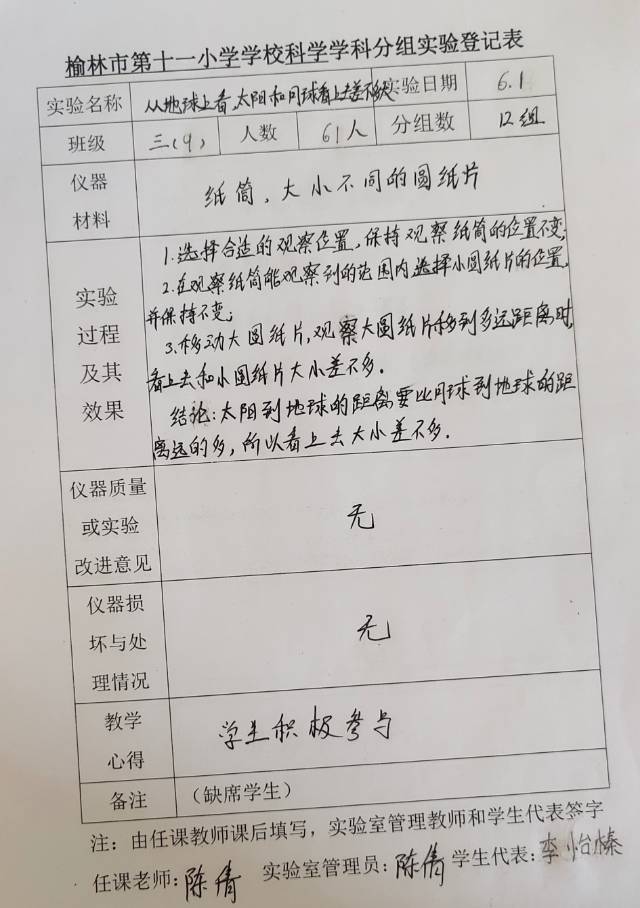 榆林市第十一小学学校科学学科分组实验登记表
实验名称 从地球上看,太阳和月球看上去差不多大 实验日期 6.1
班级 三(9) 人数 61人 分组数 12组
仪器材料 纸筒,大小不同的圆纸片
实验过程及其效果
1.选择合适的观察位置,保持观察纸筒的位置不变;
2.在观察纸筒能观察到的范围内,选择小圆纸片的位置,
并保持不变;
3.移动大圆纸片,观察大圆纸片移到多远距离时,
看上去和小圆纸片大小差不多.
结论:太阳到地球的距离要比月球到地球的距
离远的多,所以看上去大小差不多.
仪器质量或实验改进意见 无
仪器损坏与处理情况 无
教学心得 学生积极参与
备注 (缺席学生)
注:由任课教师课后填写,实验室管理教师和学生代表签字
任课老师:陈倩 实验室管理员:陈倩 学生代表:李怡榛